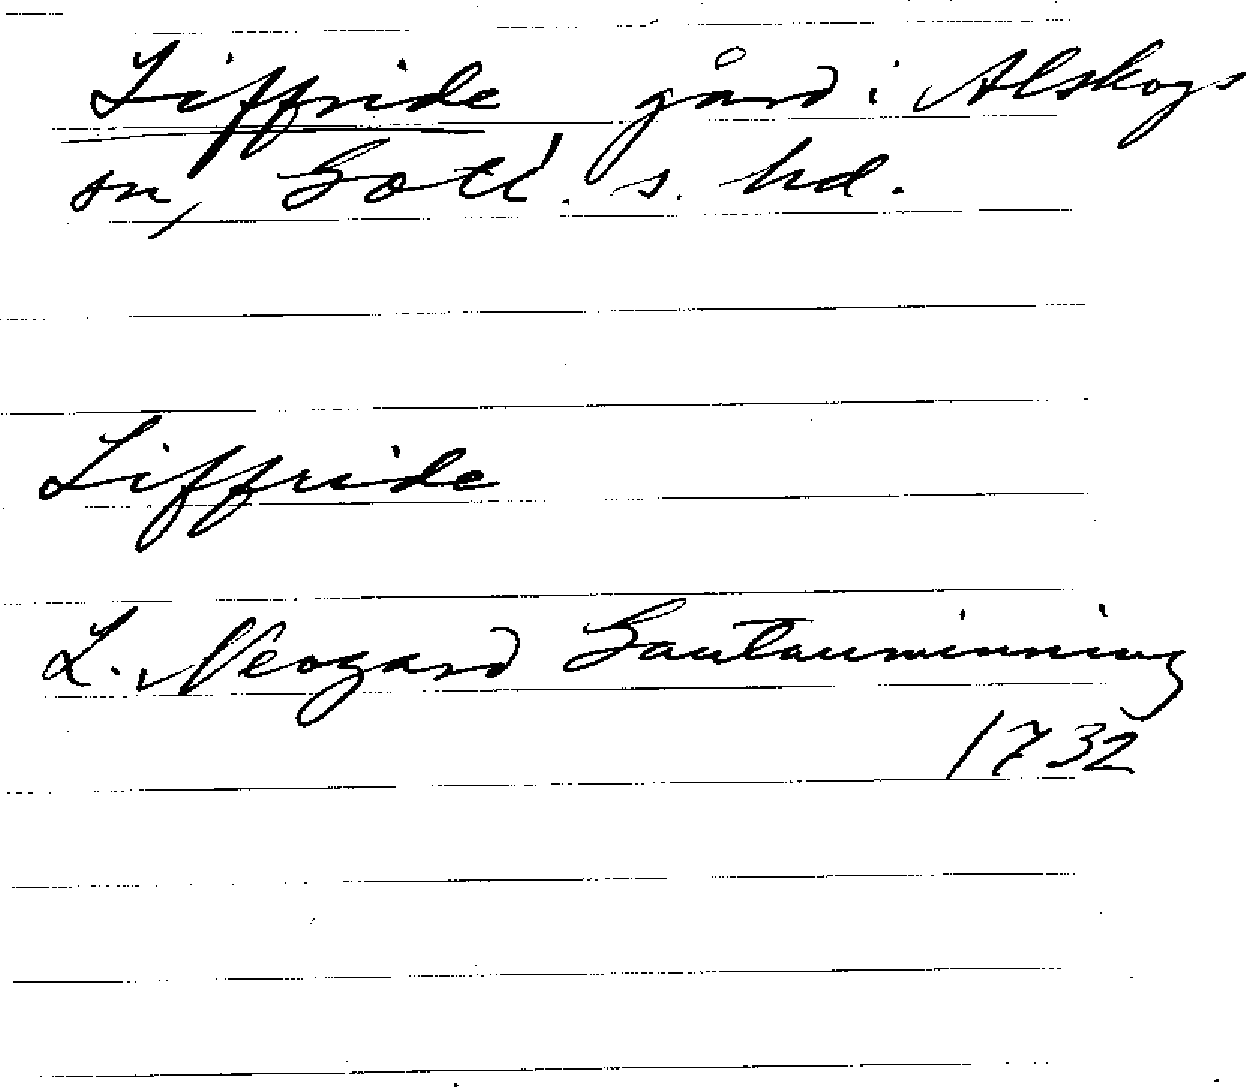 Liffride gård i Alskogs
sn, Gotl. s. hd.
Liffride
L. Neogard Gautauminning
1732